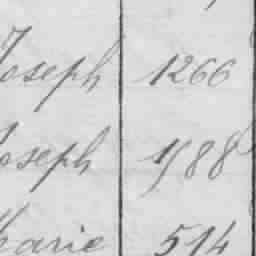 Joseph 1266
Joseph 1588
Marie 514